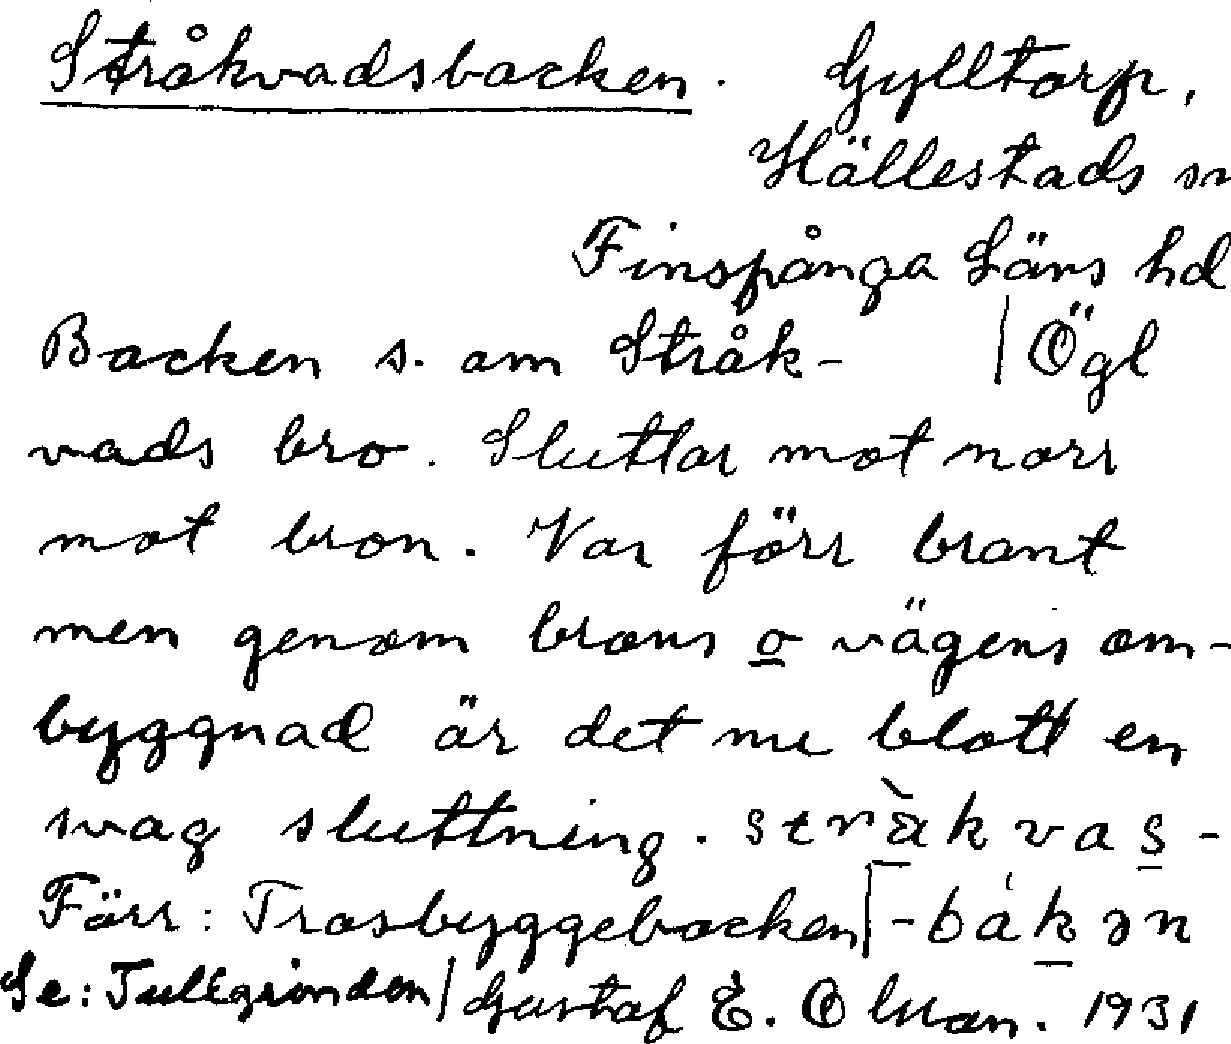 Stråkvadsbacken. Gylltorp,
Hällestads sn
Finspånga Läns hd
Backen s. om Stråk- | Ögl
vads bro. Sluttar mot norr
mot bron. Var förr brant
men genom brons o vägens om-
byggnad är det nu blott en
svag sluttning. stràkvas-
Förr: Trasbyggebacken | -bákən
Se: Tullgrinden | Gustaf E. Olsson. 1931